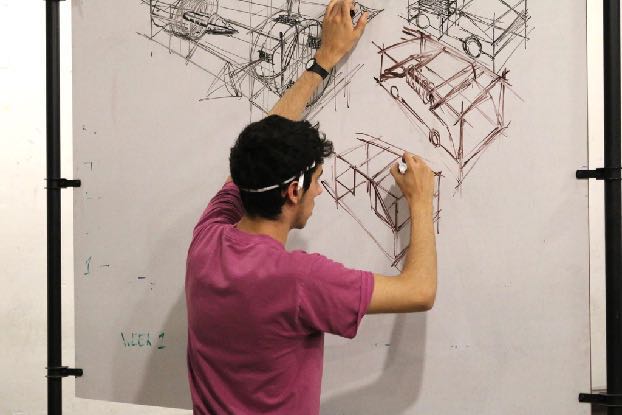 WEEK 1